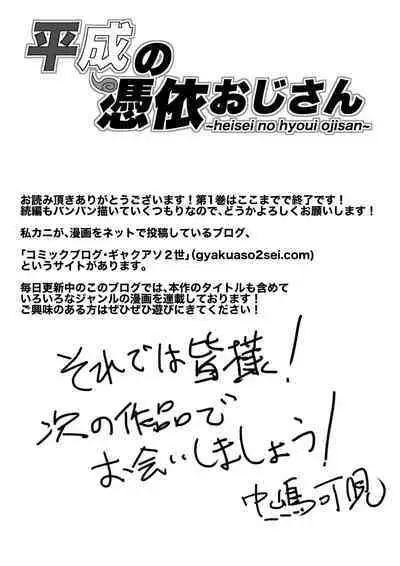 平成の
憑依おじさん
~heisei no hyoui ojisan~
お読み頂きありがとうございます！第1巻はここまでで終了です！
続編もバンバン描いていくつもりなので、どうかよろしくお願いします！
私カニが、漫画をネットで投稿しているブログ、
「コミックブログ・ギャクアソ２世」(gyakuaso2sei.com)
というサイトがあります。
毎日更新中のこのブログでは、本作のタイトルも含めて
いろいろなジャンルの漫画を連載しております！
ご興味のある方はぜひぜひ遊びにきてください！
それでは皆様！
次の作品で
お会いしましょう！
中嶋可見